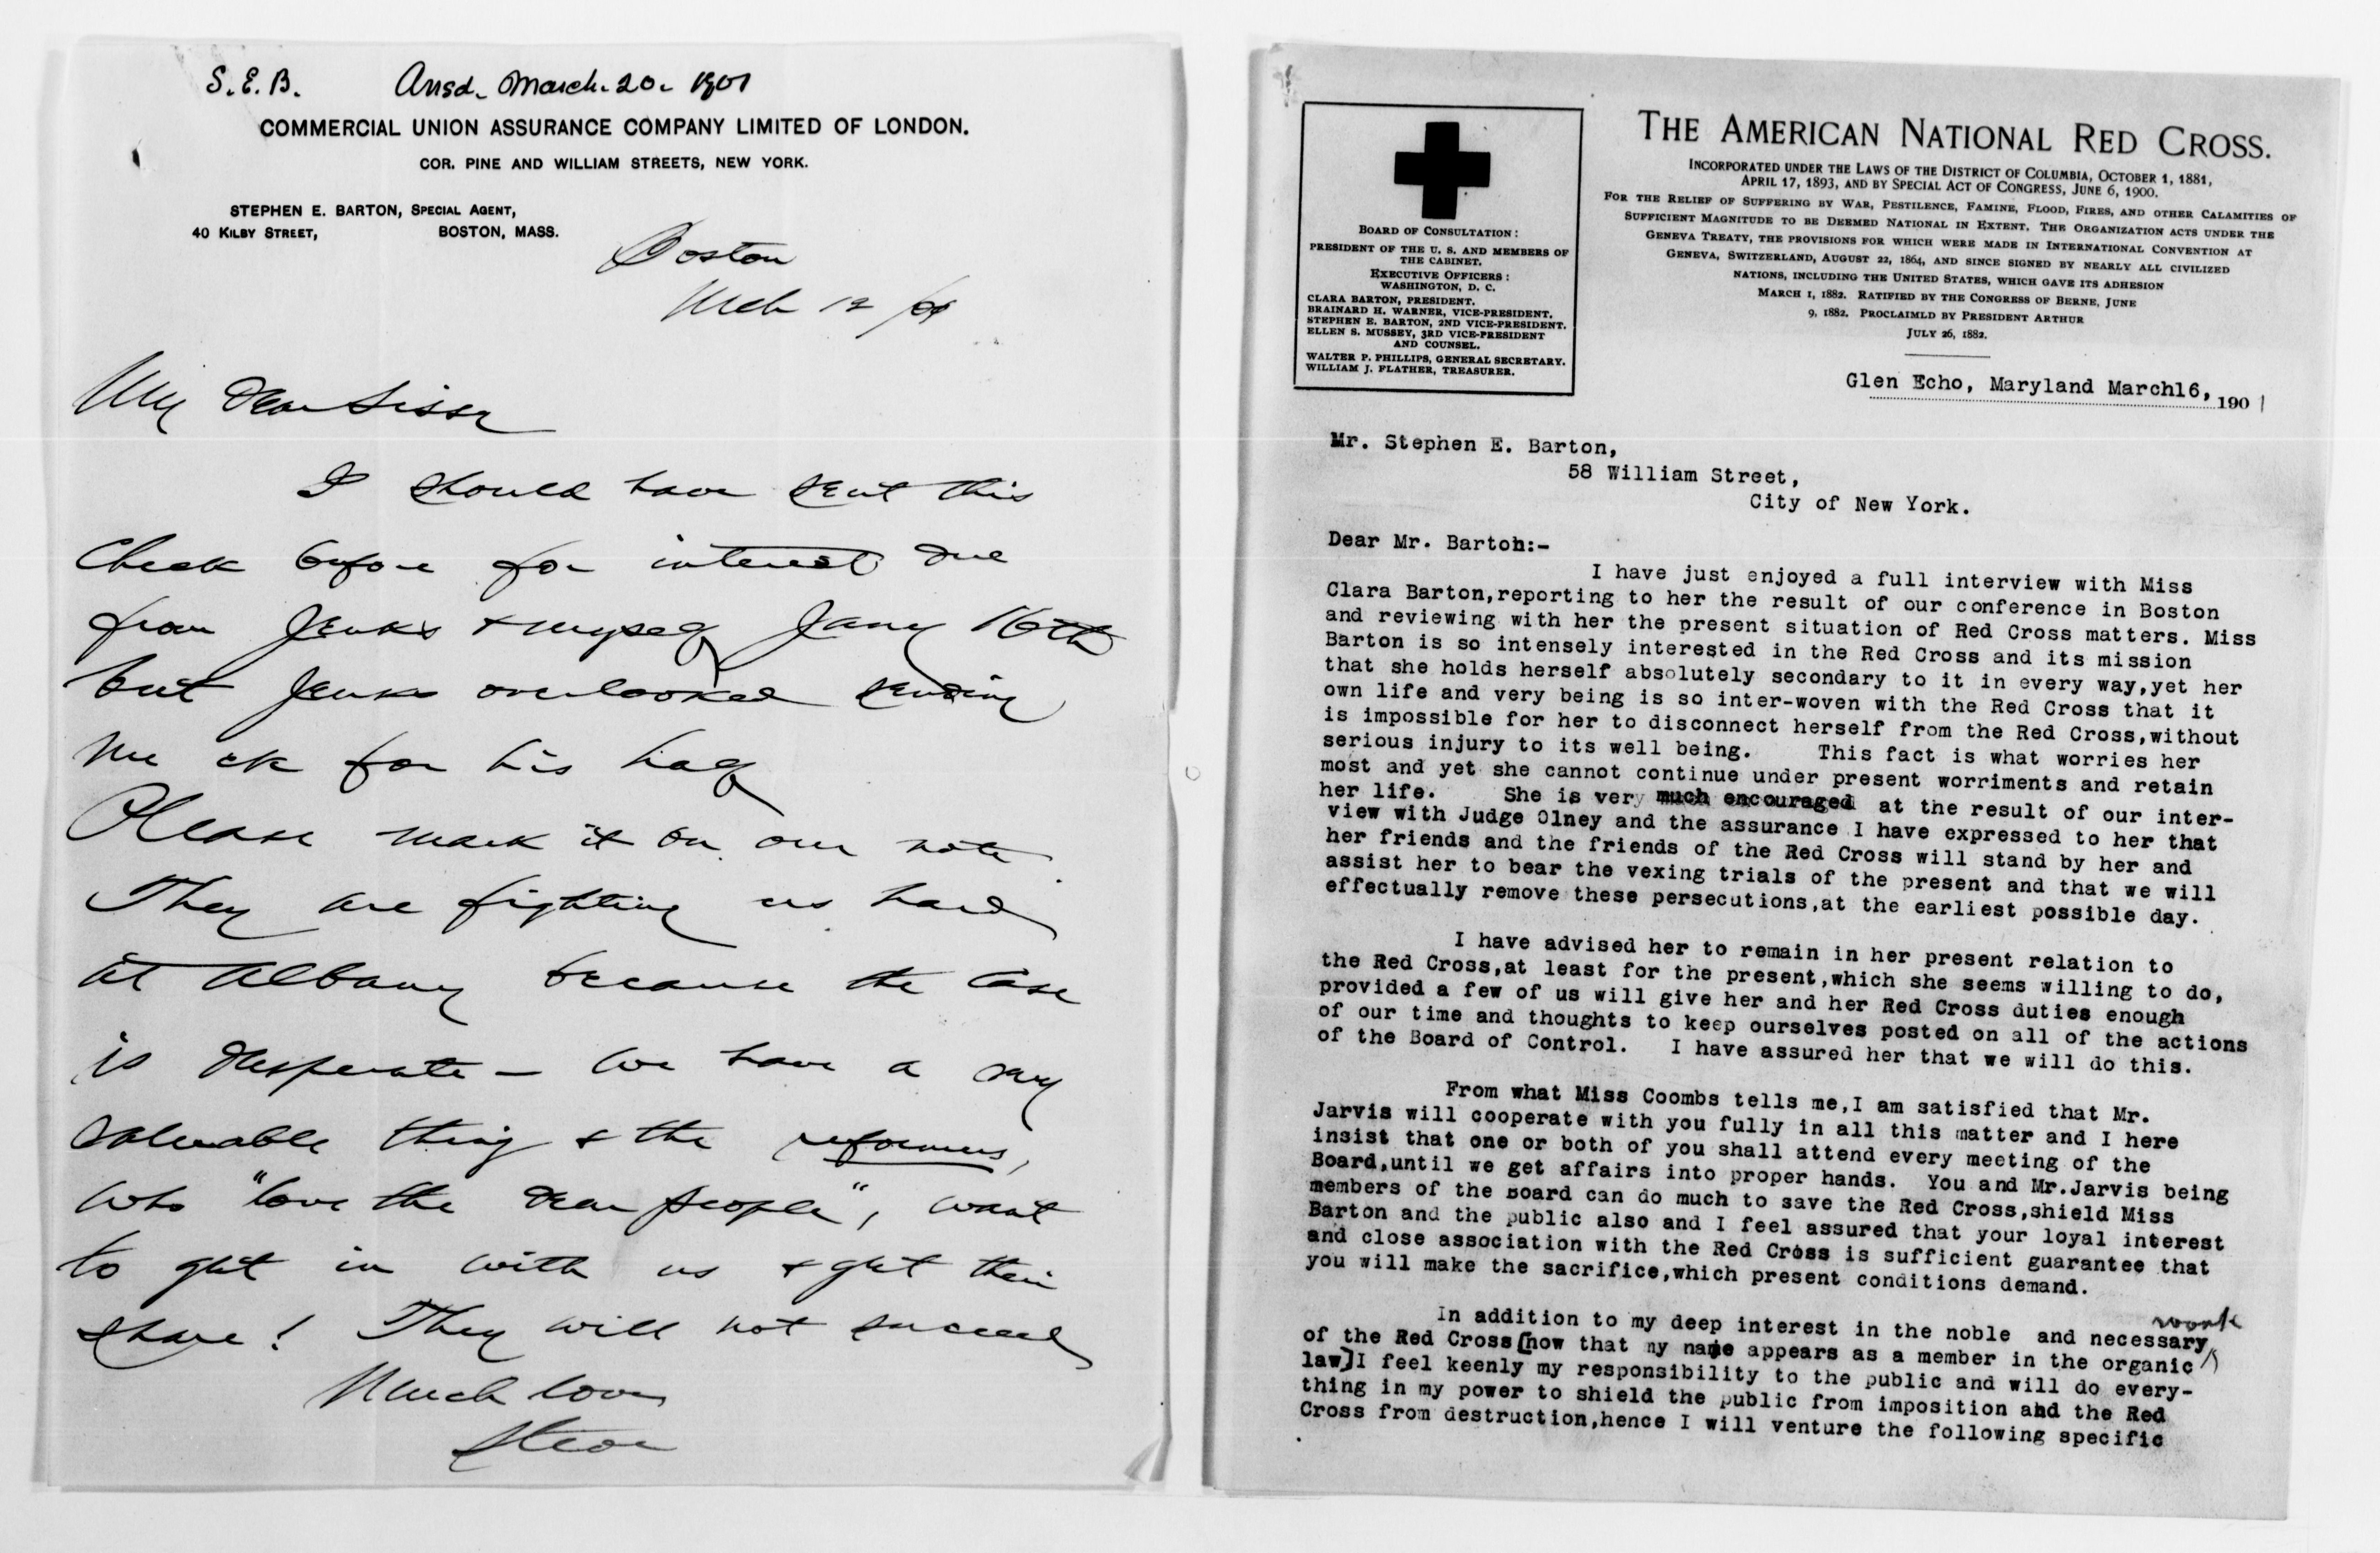 S.E.B. Ansd. March. 20. 1901
COMMERCIAL UNION ASSURANCE COMPANY LIMITED OF LONDON.
COR. PINE AND WILLIAM STREETS, NEW YORK.
STEPHEN E. BARTON, SPECIAL AGENT,
40 KILBY STREET, BOSTON, MASS.
Boston
Mch 12 /01
My Dear Sissy
I should have sent this
Check before for interest due
from Jenks & myself Jany 16th
but Jenks overlooked sending
me ck for his half
Please mark it on our note.
They are fighting us hard
at Albany because the case
is desperate — We have a very
valuable thing & the reformers,
who "love the dear people", want
to get in with us & get their
share! They will not succeed
Much love
Steve
THE AMERICAN NATIONAL RED CROSS.
INCORPORATED UNDER THE LAWS OF THE DISTRICT OF COLUMBIA, OCTOBER 1, 1881,
APRIL 17, 1893, AND BY SPECIAL ACT OF CONGRESS, JUNE 6, 1900.
FOR THE RELIEF OF SUFFERING BY WAR, PESTILENCE, FAMINE, FLOOD, FIRES, AND OTHER CALAMITIES OF
SUFFICIENT MAGNITUDE TO BE DEEMED NATIONAL IN EXTENT. THE ORGANIZATION ACTS UNDER THE
GENEVA TREATY, THE PROVISIONS FOR WHICH WERE MADE IN INTERNATIONAL CONVENTION AT
GENEVA, SWITZERLAND, AUGUST 22, 1864, AND SINCE SIGNED BY NEARLY ALL CIVILIZED
NATIONS, INCLUDING THE UNITED STATES, WHICH GAVE ITS ADHESION
MARCH 1, 1882. RATIFIED BY THE CONGRESS OF BERNE, JUNE
9, 1882. PROCLAIMED BY PRESIDENT ARTHUR
JULY 26, 1882.
BOARD OF CONSULTATION:
PRESIDENT OF THE U. S. AND MEMBERS OF
THE CABINET.
EXECUTIVE OFFICERS:
WASHINGTON, D. C.
CLARA BARTON, PRESIDENT.
BRAINARD H. WARNER, VICE-PRESIDENT.
STEPHEN E. BARTON, 2ND VICE-PRESIDENT.
ELLEN S. MUSSEY, 3RD VICE-PRESIDENT
AND COUNSEL.
WALTER P. PHILLIPS, GENERAL SECRETARY.
WILLIAM J. FLATHER, TREASURER.
Glen Echo, Maryland March16, 1901
Mr. Stephen E. Barton,
58 William Street,
City of New York.
Dear Mr. Barton:-
I have just enjoyed a full interview with Miss
Clara Barton,reporting to her the result of our conference in Boston
and reviewing with her the present situation of Red Cross matters. Miss
Barton is so intensely interested in the Red Cross and its mission
that she holds herself absolutely secondary to it in every way,yet her
own life and very being is so inter-woven with the Red Cross that it
is impossible for her to disconnect herself from the Red Cross,without
serious injury to its well being. This fact is what worries her
most and yet she cannot continue under present worriments and retain
her life. She is very much encouraged at the result of our inter-
view with Judge Olney and the assurance I have expressed to her that
her friends and the friends of the Red Cross will stand by her and
assist her to bear the vexing trials of the present and that we will
effectually remove these persecutions,at the earliest possible day.
I have advised her to remain in her present relation to
the Red Cross,at least for the present,which she seems willing to do,
provided a few of us will give her and her Red Cross duties enough
of our time and thoughts to keep ourselves posted on all of the actions
of the Board of Control. I have assured her that we will do this.
From what Miss Coombs tells me,I am satisfied that Mr.
Jarvis will cooperate with you fully in all this matter and I here
insist that one or both of you shall attend every meeting of the
Board,until we get affairs into proper hands. You and Mr.Jarvis being
members of the Board can do much to save the Red Cross,shield Miss
Barton and the public also and I feel assured that your loyal interest
and close association with the Red Cross is sufficient guarantee that
you will make the sacrifice,which present conditions demand.
In addition to my deep interest in the noble and necessary work
of the Red Cross(now that my name appears as a member in the organic
law)I feel keenly my responsibility to the public and will do every-
thing in my power to shield the public from imposition and the Red
Cross from destruction,hence I will venture the following specific